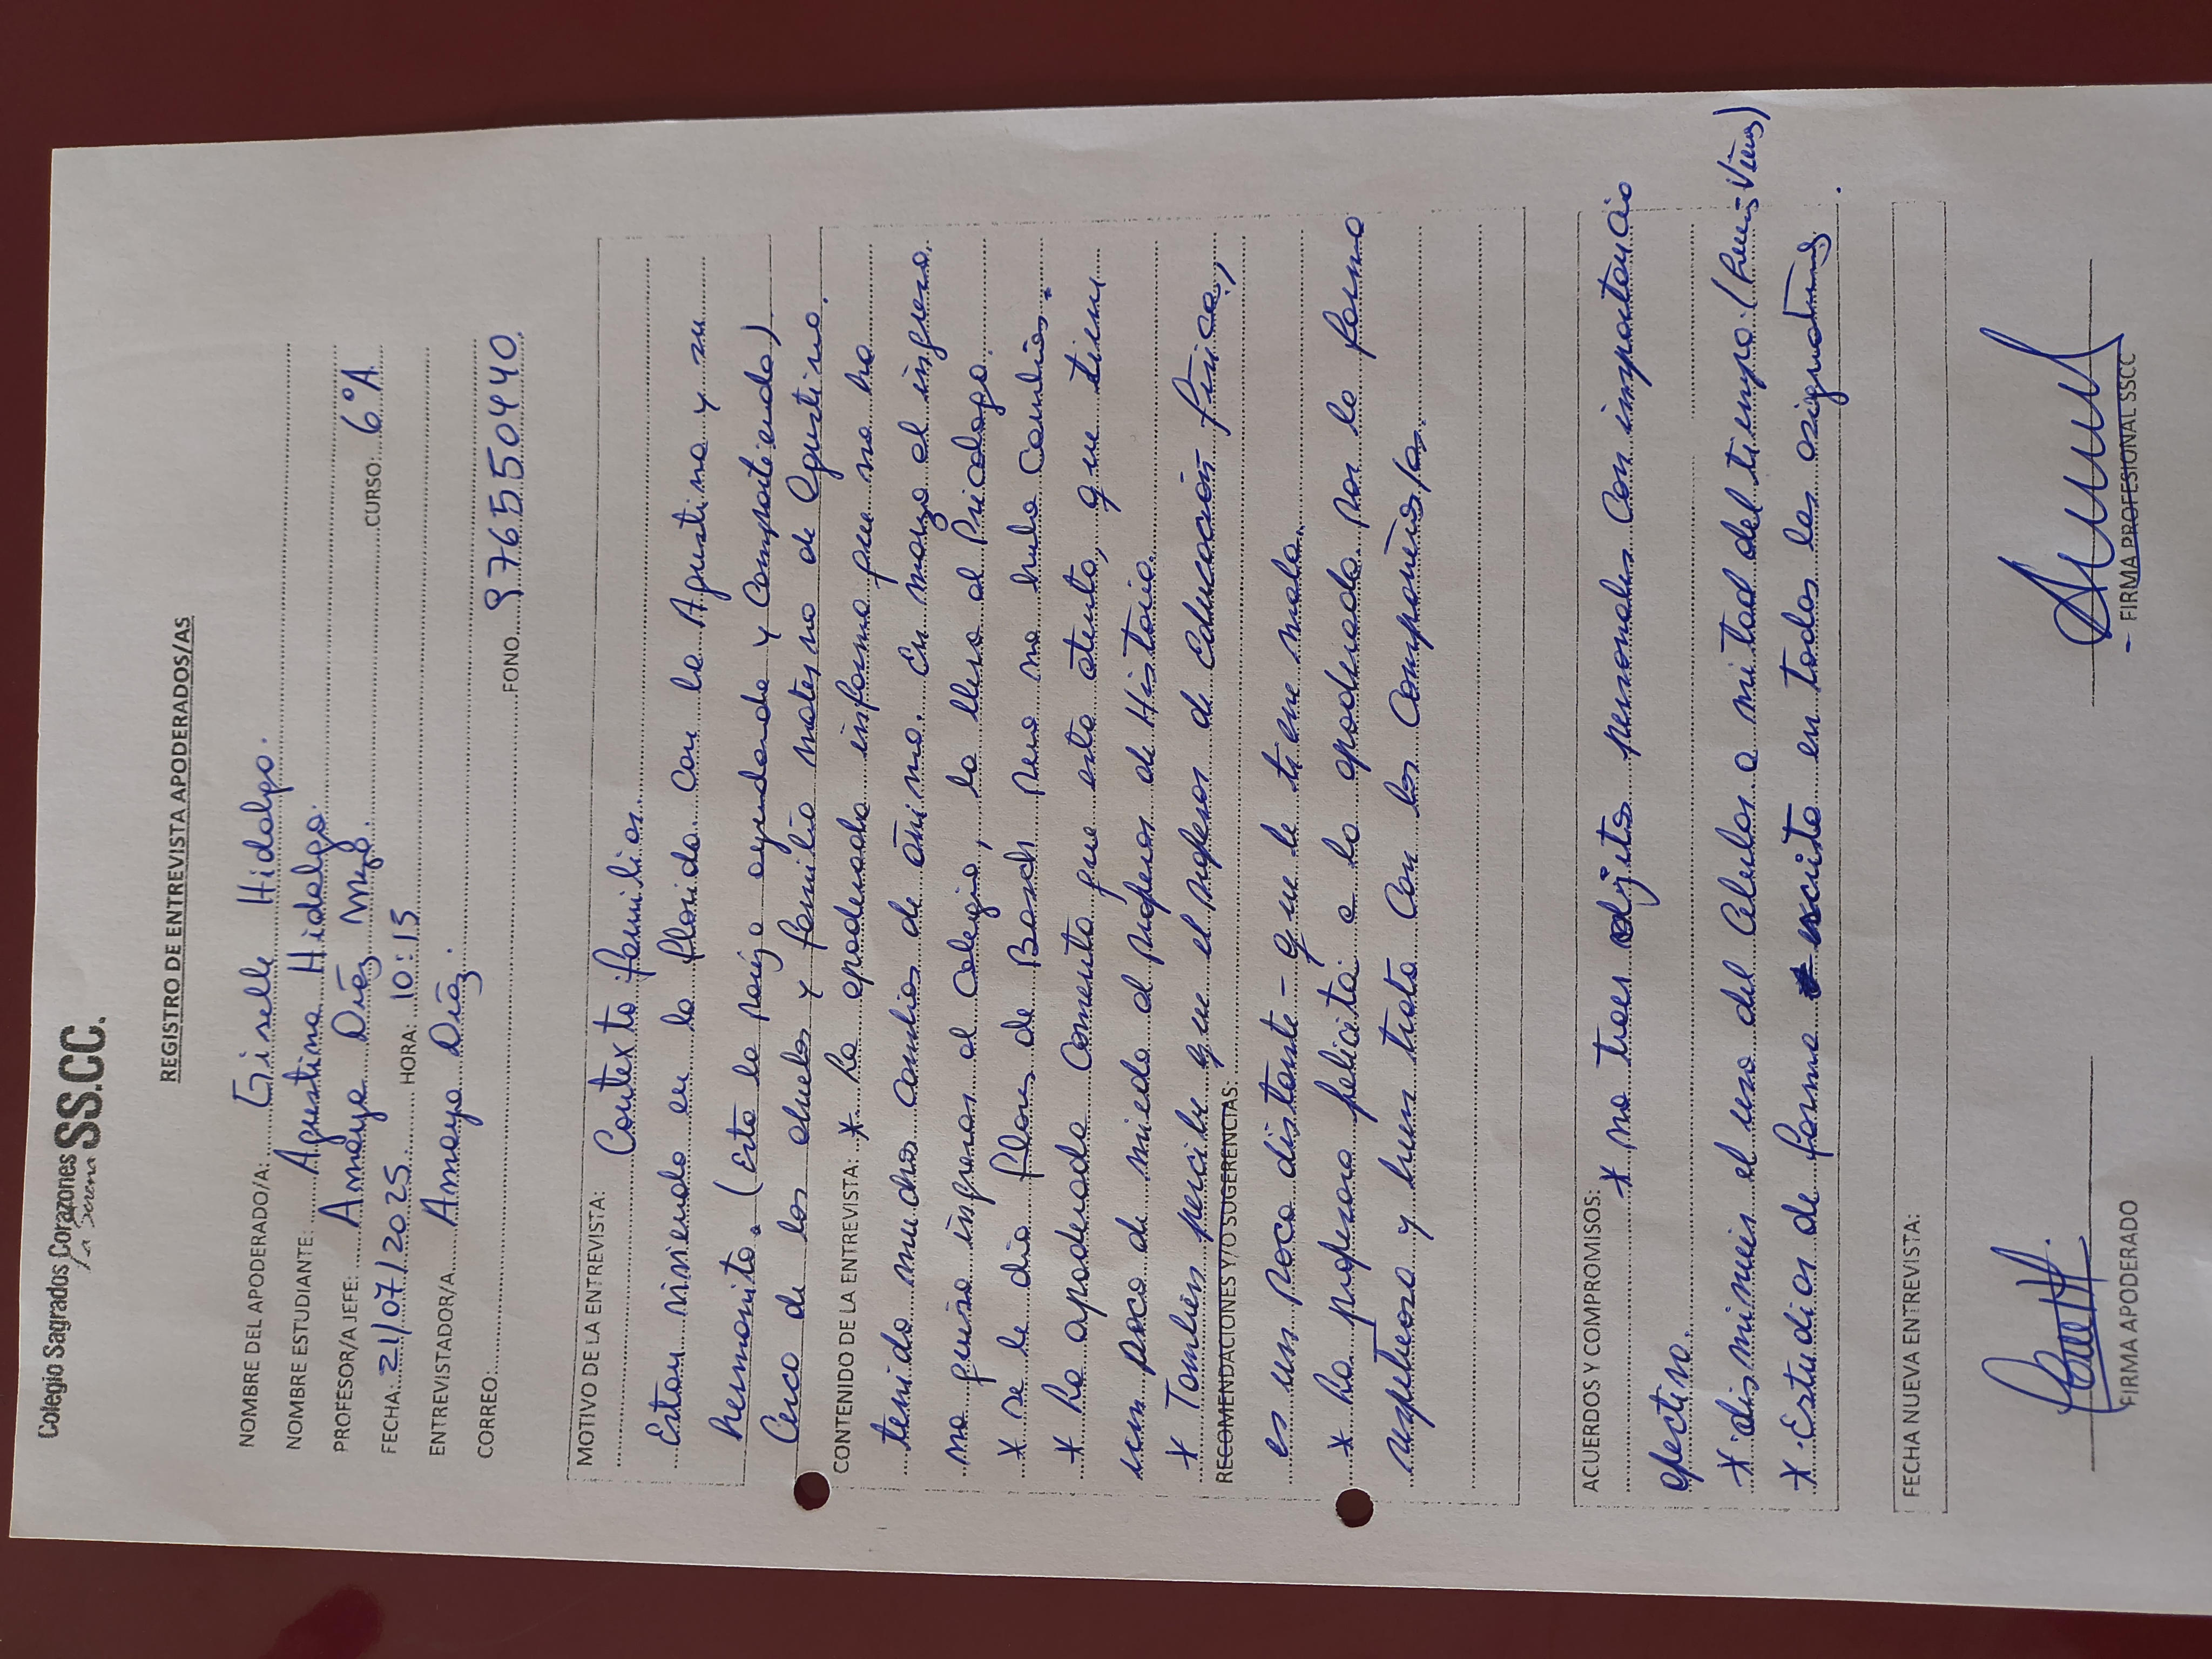 Colegio Sagrados Corazones SS.CC.
La Serena
REGISTRO DE ENTREVISTA APODERADOS/AS
NOMBRE DEL APODERADO/A: Giselle Hidalgo.
NOMBRE ESTUDIANTE: Agustina Hidalgo.
PROFESOR/A JEFE: Amaya Díaz Mnzo. CURSO: 6°A
FECHA: 21/07/2025 HORA: 10:15
ENTREVISTADOR/A: Amaya Díaz.
CORREO: FONO 976550440.
MOTIVO DE LA ENTREVISTA: Contexto familiar.
Estan viviendo en la florida con la Agustina y su
hermanito. (Esta la pareja ayudando y compartiendo)
Cerca de los abuelos y familia materna de Agustina.
CONTENIDO DE LA ENTREVISTA: * La apoderada informa que no ha
tenido muchos cambios de ánimo. En marzo al ingreso.
no quiso ingresar al Colegio, la llevo al Psicologo.
* se le dio flores de Bach pero no hubo cambios.
* La apoderada comenta que esta atenta, que tiene
un poco de miedo al profesor de Historia.
* También percibe que el profesor de Educación física,
RECOMENDACIONES Y/O SUGERENCIAS:
es un poco distante - que le tiene mala.
* La profesora felicita a la apoderada por la forma
respetuosa y buen trato con los compañeros/as.
ACUERDOS Y COMPROMISOS: * no traer objetos personales con importancia
afectiva.
* disminuir el uso del celular a mitad del tiempo. (Lunes-Viernes)
* Estudiar de forma escrita en todas las asignaturas.
FECHA NUEVA ENTREVISTA:
FIRMA APODERADO
FIRMA PROFESIONAL SSCC